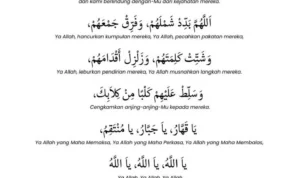 dan kami berlindung dengan-Mu dari kejahatan mereka.
اَللّٰهُمَّ بَدِّدْ شَمْلَهُمْ، وَفَرِّقْ جَمْعَهُمْ،
Ya Allah, hancurkan kumpulan mereka, Ya Allah, pecahkan pakatan mereka,
وَشَتِّتْ كَلِمَتَهُمْ، وَزَلْزِلْ أَقْدَامَهُمْ،
Ya Allah, leburkan pendirian mereka, Ya Allah musnahkan langkah mereka.
وَسَلِّطْ عَلَيْهِمْ كَلْبًا مِنْ كِلَابِكَ،
Cengkamkan anjing-anjing-Mu kepada mereka.
يَا قَهَّارُ، يَا جَبَّارُ، يَا مُنْتَقِمُ
Ya Allah yang Maha Memaksa, Ya Allah yang Maha Perkasa, Ya Allah yang Maha Membalas,
يَا اَللّٰهُ، يَا اَللّٰهُ، يَا اَللّٰهُ
Ya Allah, Ya Allah, Ya Allah